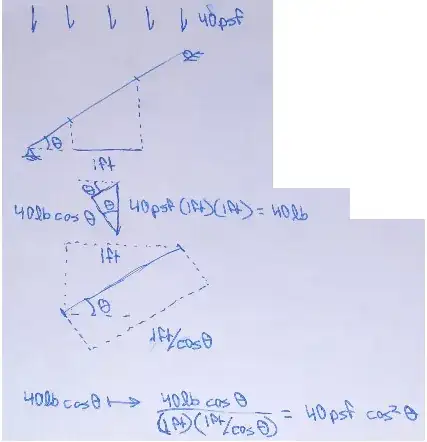 40psf
θ
1ft
θ
θ
40lb cos θ
40psf (1ft)(1ft) = 40lb
1ft
θ
1ft/cosθ
40lb cosθ ↦ 40lb cosθ / (1ft)(1ft/cosθ) = 40psf cos²θ